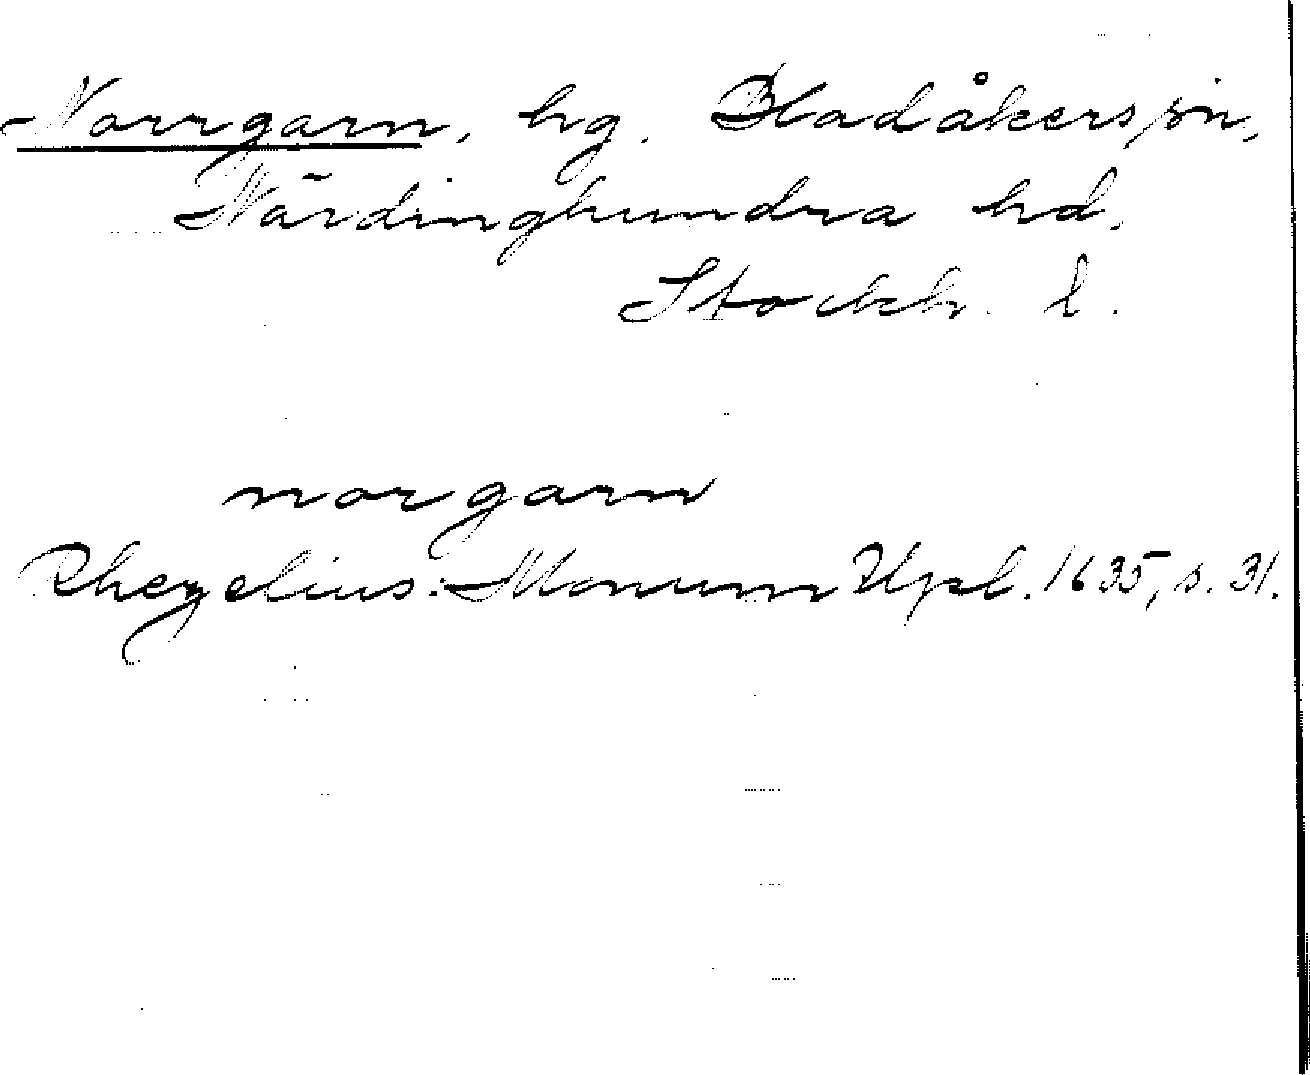 Norrgarn, hg. Bladåkers sn,
Närdinghundra hd.
Stockh. l.
norgarn
Rhezelius: Monum Upl. 1635, s. 31.